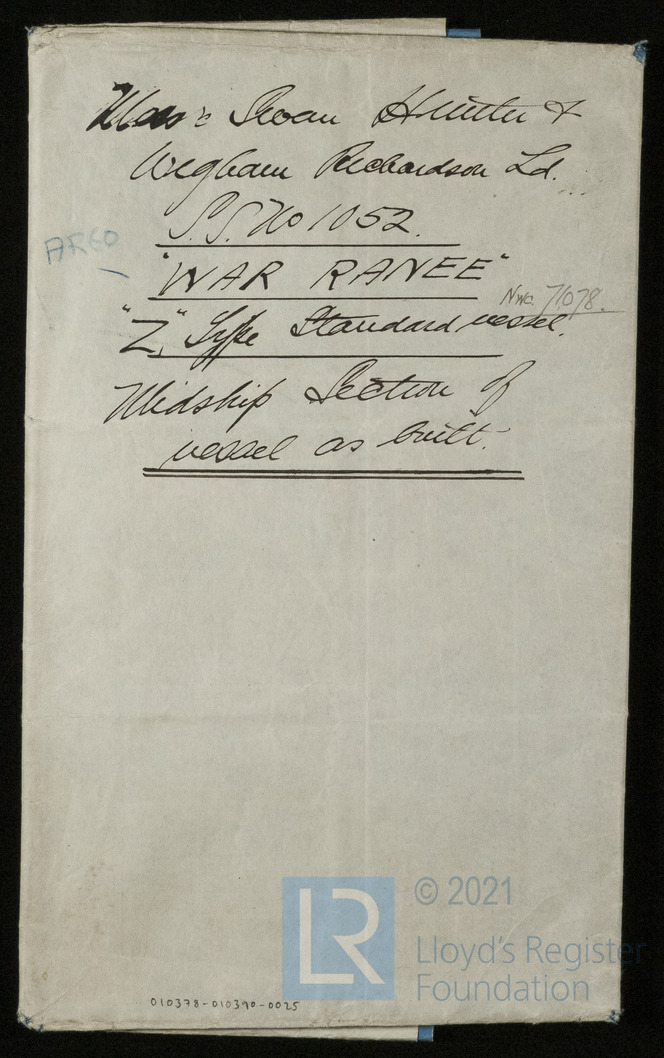 Mess's Swan Hunter &
Wigham Richardson Ld.
S.S. No 1052.
ARGO
"WAR RANEE"
Nwc. 71078.
"Z" Type Standard vessel.
Midship Section of
vessel as built.
LR
© 2021
Lloyd's Register
Foundation
010378-010390-0025